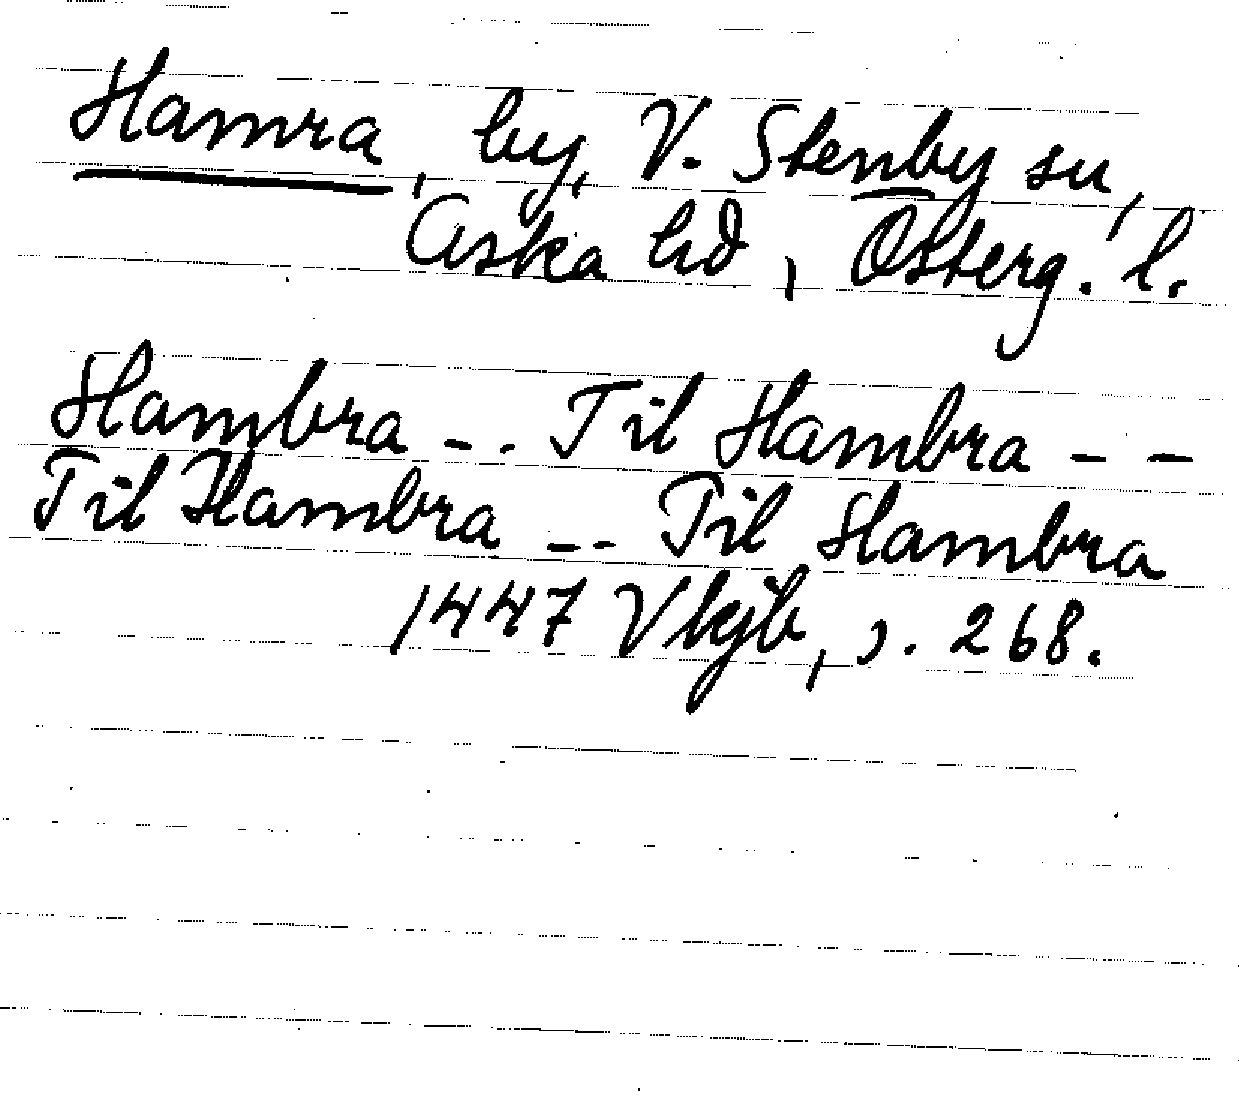 Hamra, by, V. Stenby sn,
Aska hd, Österg. l.
Hambra -- Til Hambra --
Til Hambra -- Til Hambra
1447 Vkjb, s. 268.